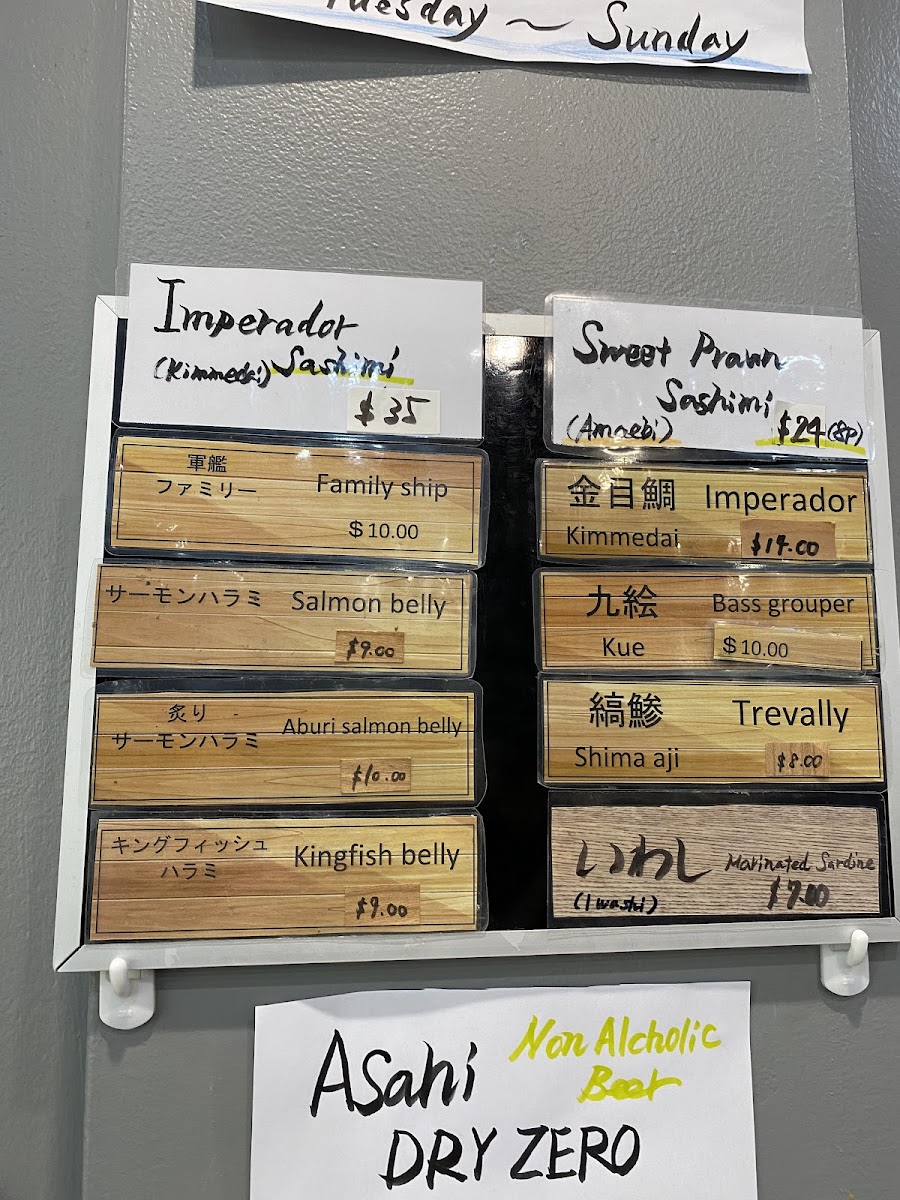 Tuesday ~ Sunday
Imperador
(Kimmedai) Sashimi
$35
軍艦
ファミリー
Family ship
$10.00
サーモンハラミ
Salmon belly
$9.00
炙り
サーモンハラミ
Aburi salmon belly
$10.00
キングフィッシュ
ハラミ
Kingfish belly
$9.00
Sweet Prawn
Sashimi
(Amaebi)
$24 (8P)
金目鯛 Imperador
Kimmedai
$14.00
九絵 Bass grouper
Kue
$10.00
縞鯵 Trevally
Shima aji
$8.00
いわし Marinated Sardine
(Iwashi)
$7.00
Asahi
Non Alcholic
Beer
DRY ZERO